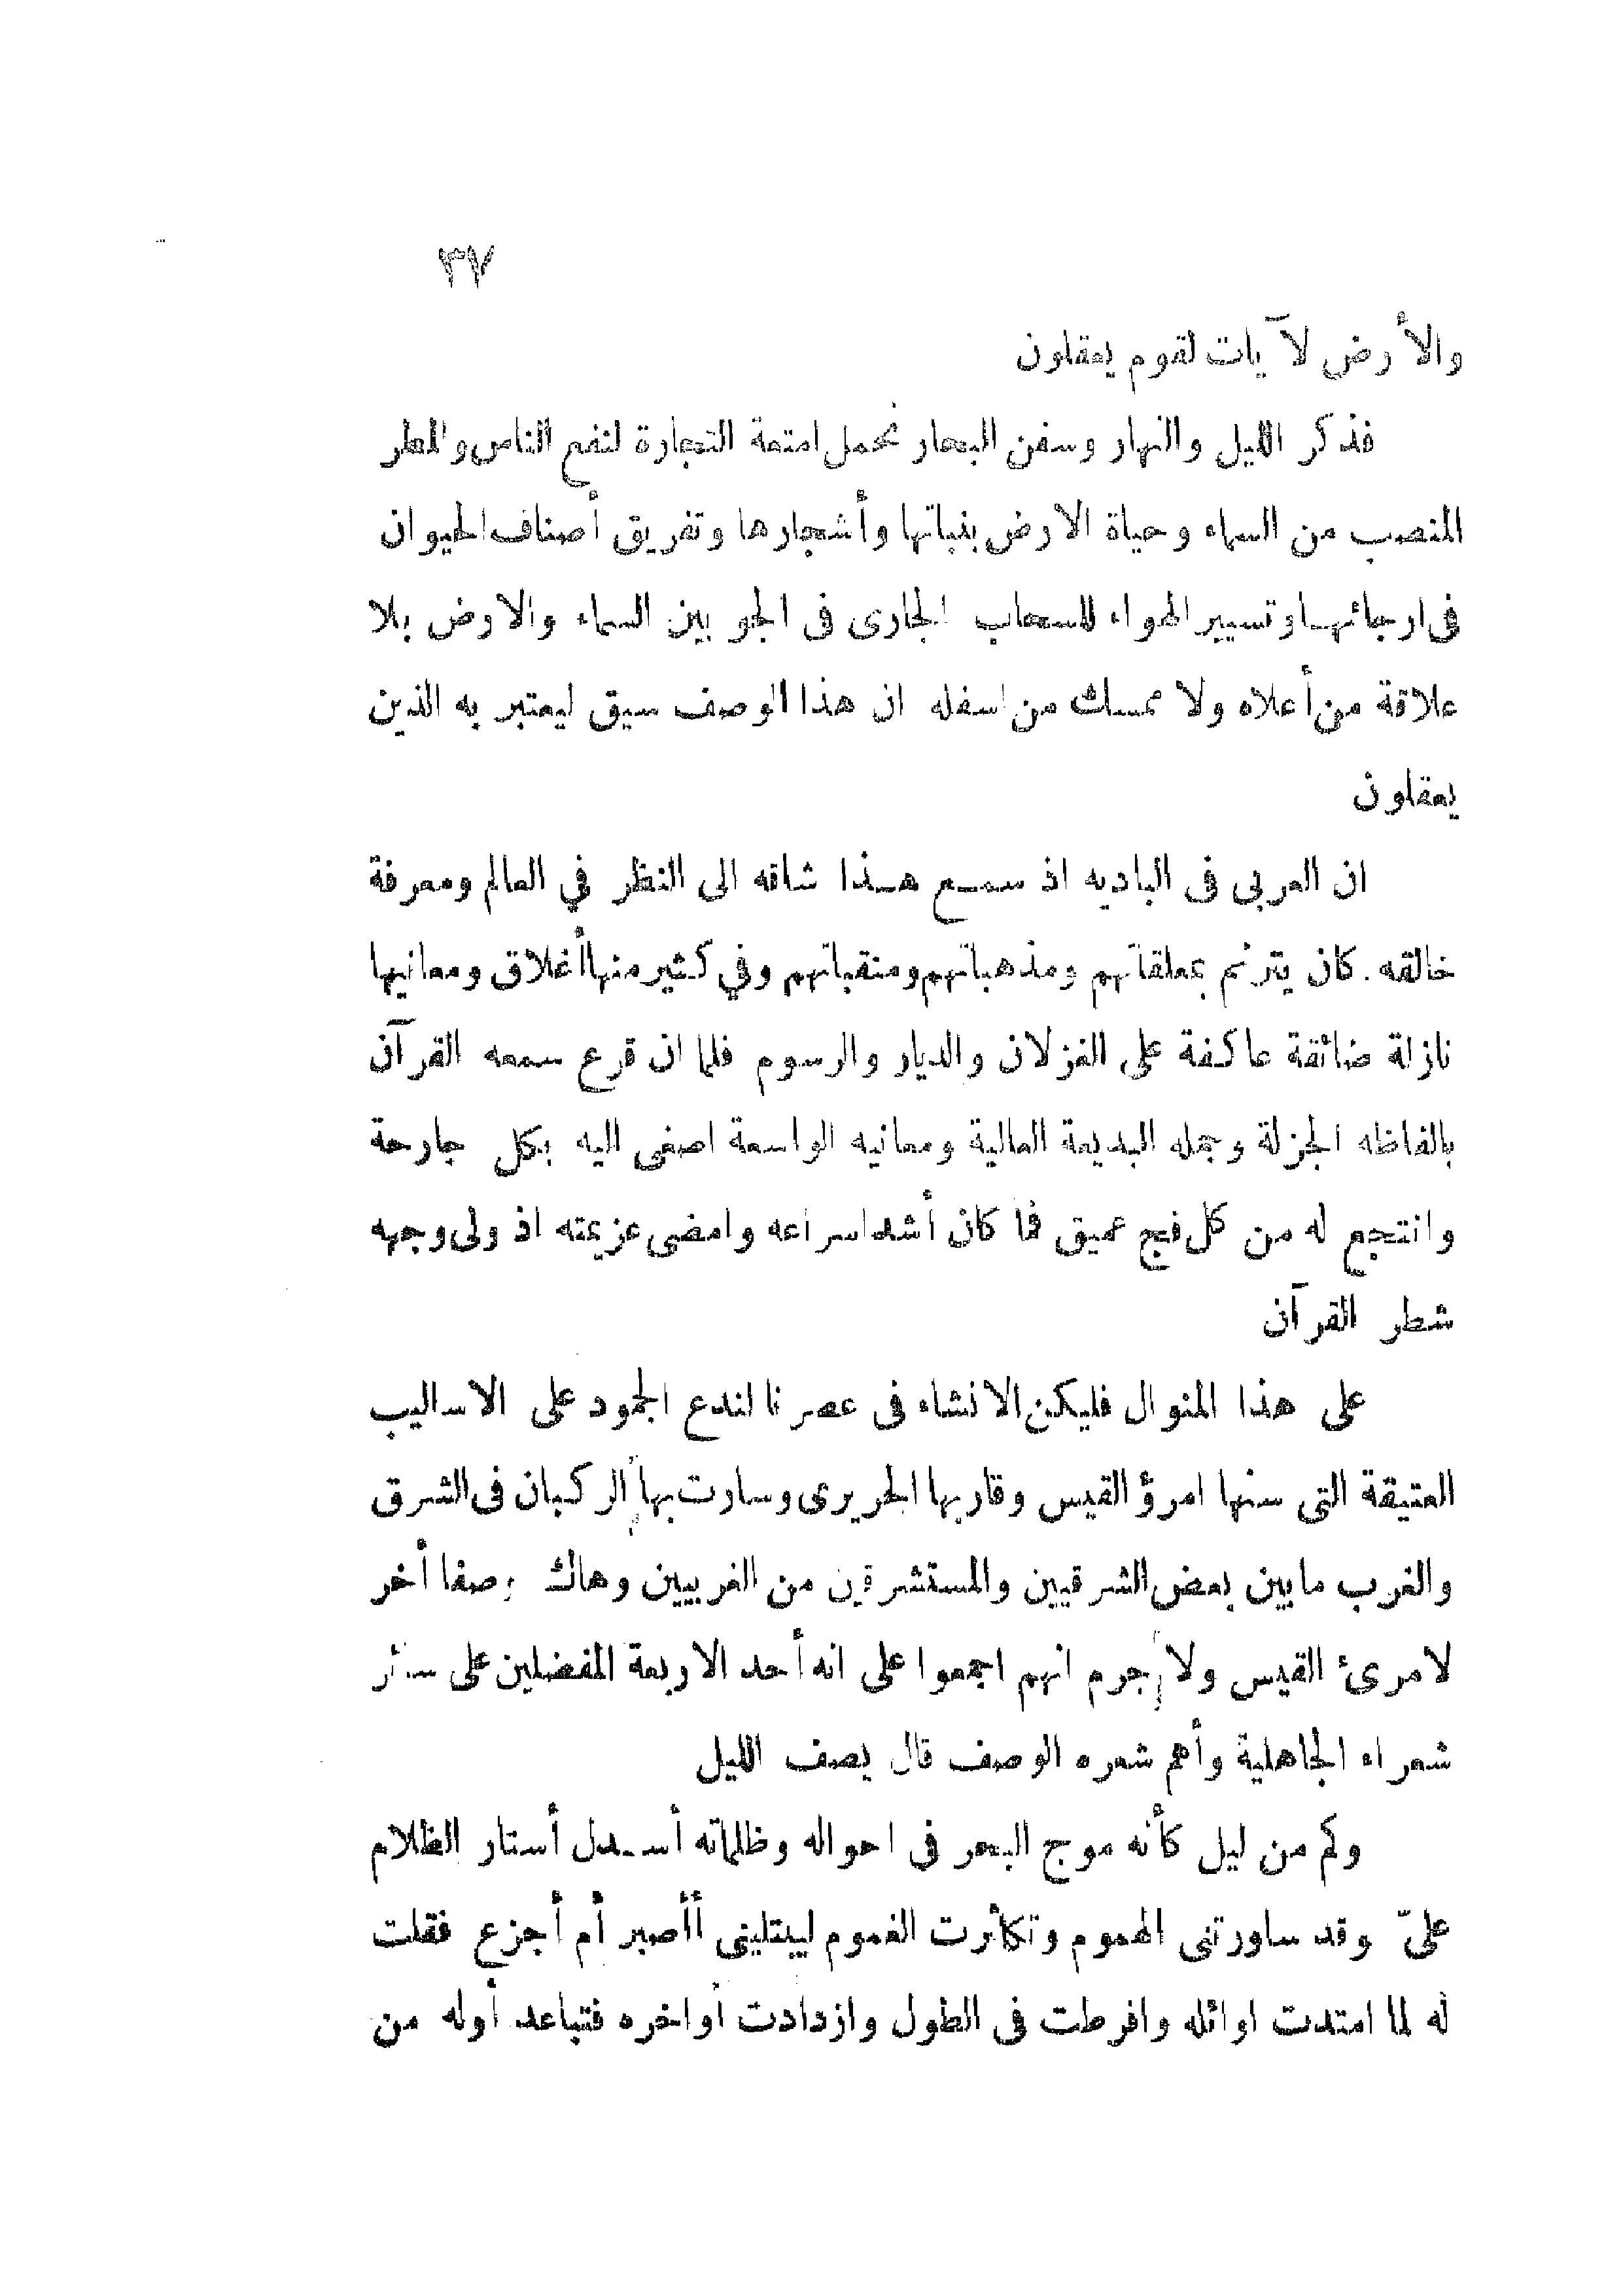 ٣٧
والأرض لآيات لقوم يعقلون
فذكر الليل والنهار وسفن البحار تحمل امتعة التجارة لنفع الناس والمطر
المنصب من السماء وحياة الارض بنباتها وأشجارها وتفريق أصناف الحيوان
فى ارجائها وتسيير الهواء للسحاب الجارى فى الجو بين السماء والارض بلا
علاقة من أعلاه ولا ممسك من اسفله ان هذا الوصف سيق ليعتبر به الذين
يعقلون
ان العربى فى الباديه اذ سمع هذا شاقه الى النظر في العالم ومعرفة
خالقه. كان يترنم بمعلقاتهم ومذهباتهم ومنقباتهم وفي كثير منها أغلاق ومعانيها
نازلة ضائقة عاكفة على الغزلان والديار والرسوم فلما ان قرع سمعه القرآن
بالفاظه الجزلة وجمله البديعة العالية ومعانيه الواسعة اصغى اليه بكل جارحة
وانتجع له من كل فج عميق فما كان أشد اسراعه وامضى عزيمته اذ ولى وجهه
شطر القرآن
على هذا المنوال فليكن الانشاء فى عصرنا لندع الجمود على الاساليب
العتيقة التى سنها امرؤ القيس وقاربها الحريرى وسارت بها الركبان فى الشرق
والغرب مابين بعض الشرقيين والمستشرقين من الغربيين وهاك وصفا أخر
لامرئ القيس ولا جرم انهم اجمعوا على انه أحد الاربعة المفضلين على سائر
شعراء الجاهلية وأهم شعره الوصف قال يصف الليل
وكم من ليل كأنه موج البحر فى احواله وظلماته أسدل أستار الظلام
علىّ وقد ساورتنى الهموم وتكاثرت الغموم ليبتلينى أأصبر أم أجزع فقلت
له لما امتدت اوائله وافرطت فى الطول وازدادت أواخره فتباعد أوله من